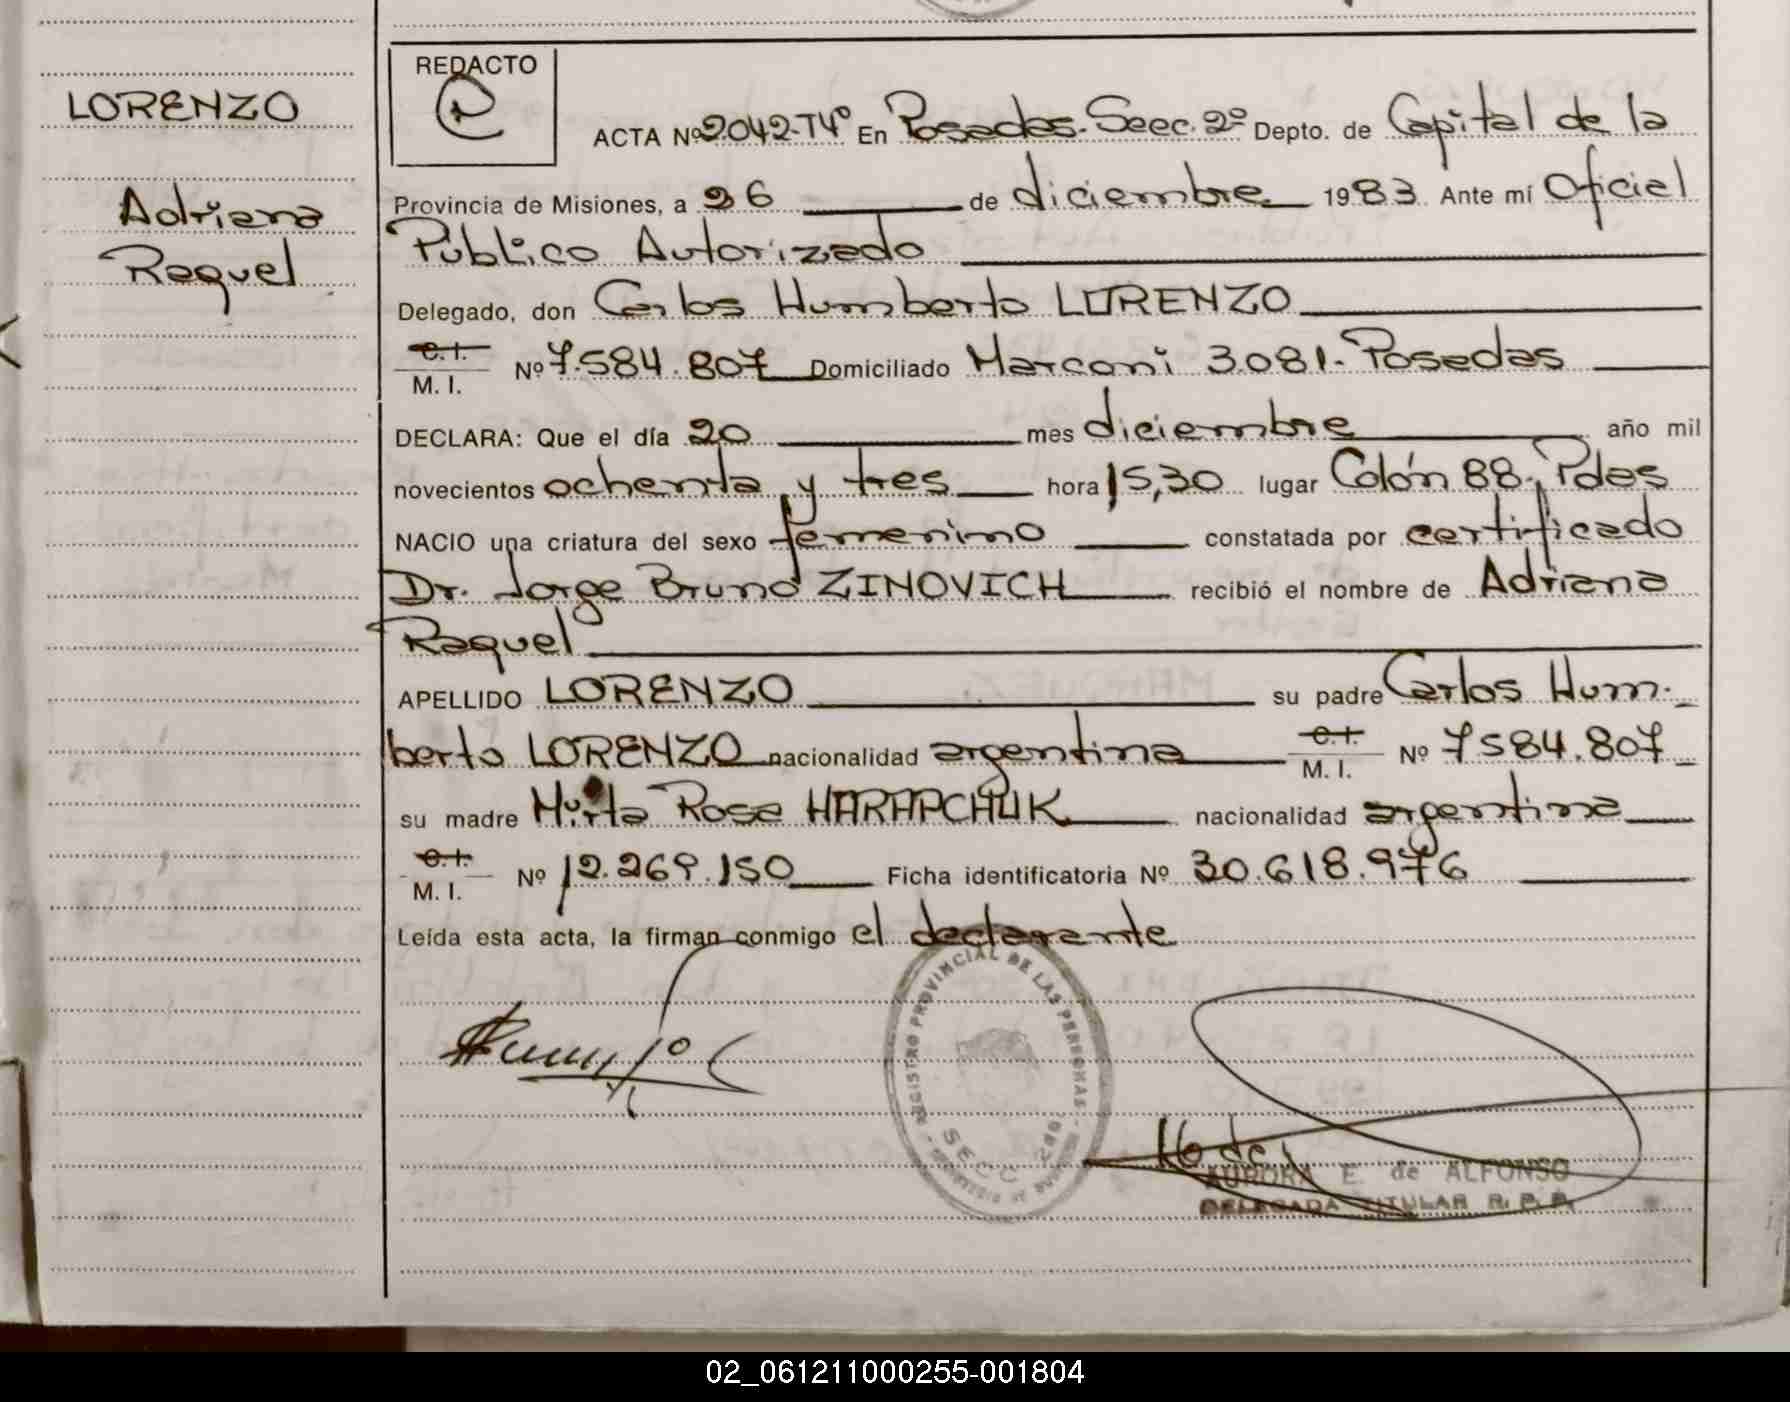 LORENZO
Adriana
Raquel
REDACTO
ACTA Nº 2042-T4º En Posadas. Secc. 2º Depto. de Capital de la
Provincia de Misiones, a 26 de diciembre 1983. Ante mí Oficial
Público Autorizado
Delegado, don Carlos Humberto LORENZO
C.I.
M. I. Nº 7.584.807 Domiciliado Marconi 3.081-Posadas
DECLARA: Que el día 20 mes diciembre año mil
novecientos ochenta y tres hora 15,30 lugar Colón 88. Pdas
NACIO una criatura del sexo femenino constatada por certificado
Dr. Jorge Bruno ZINOVICH recibió el nombre de Adriana
Raquel
APELLIDO LORENZO su padre Carlos Hum-
berto LORENZO nacionalidad argentina C.I. M. I. Nº 7584.807
su madre Mirta Rosa HARAPCHUK nacionalidad argentina
C.I.
M. I. Nº 12.269.150 Ficha identificatoria Nº 30.618.976
Leída esta acta, la firman conmigo el declarante
REGISTRO PROVINCIAL DE LAS PERSONAS
SECC. 2da.
AURORA E. de ALFONSO
DELEGADA TITULAR R. P. P.
02_061211000255-001804